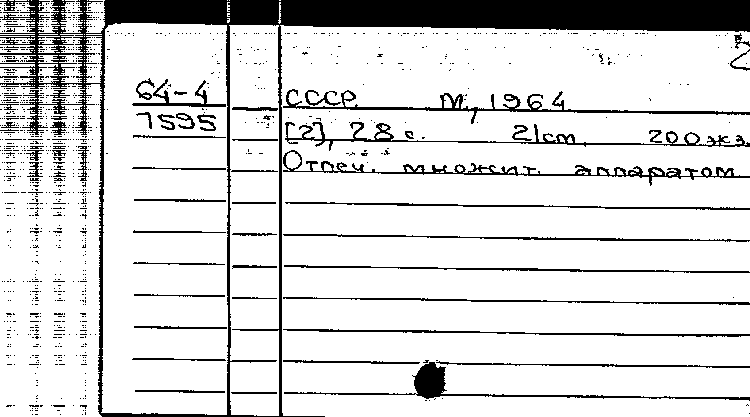 2
64-4 СССР. М, 1964
7595 [2], 28 с. 21cm. 200 экз.
Отпеч. множит. аппаратом